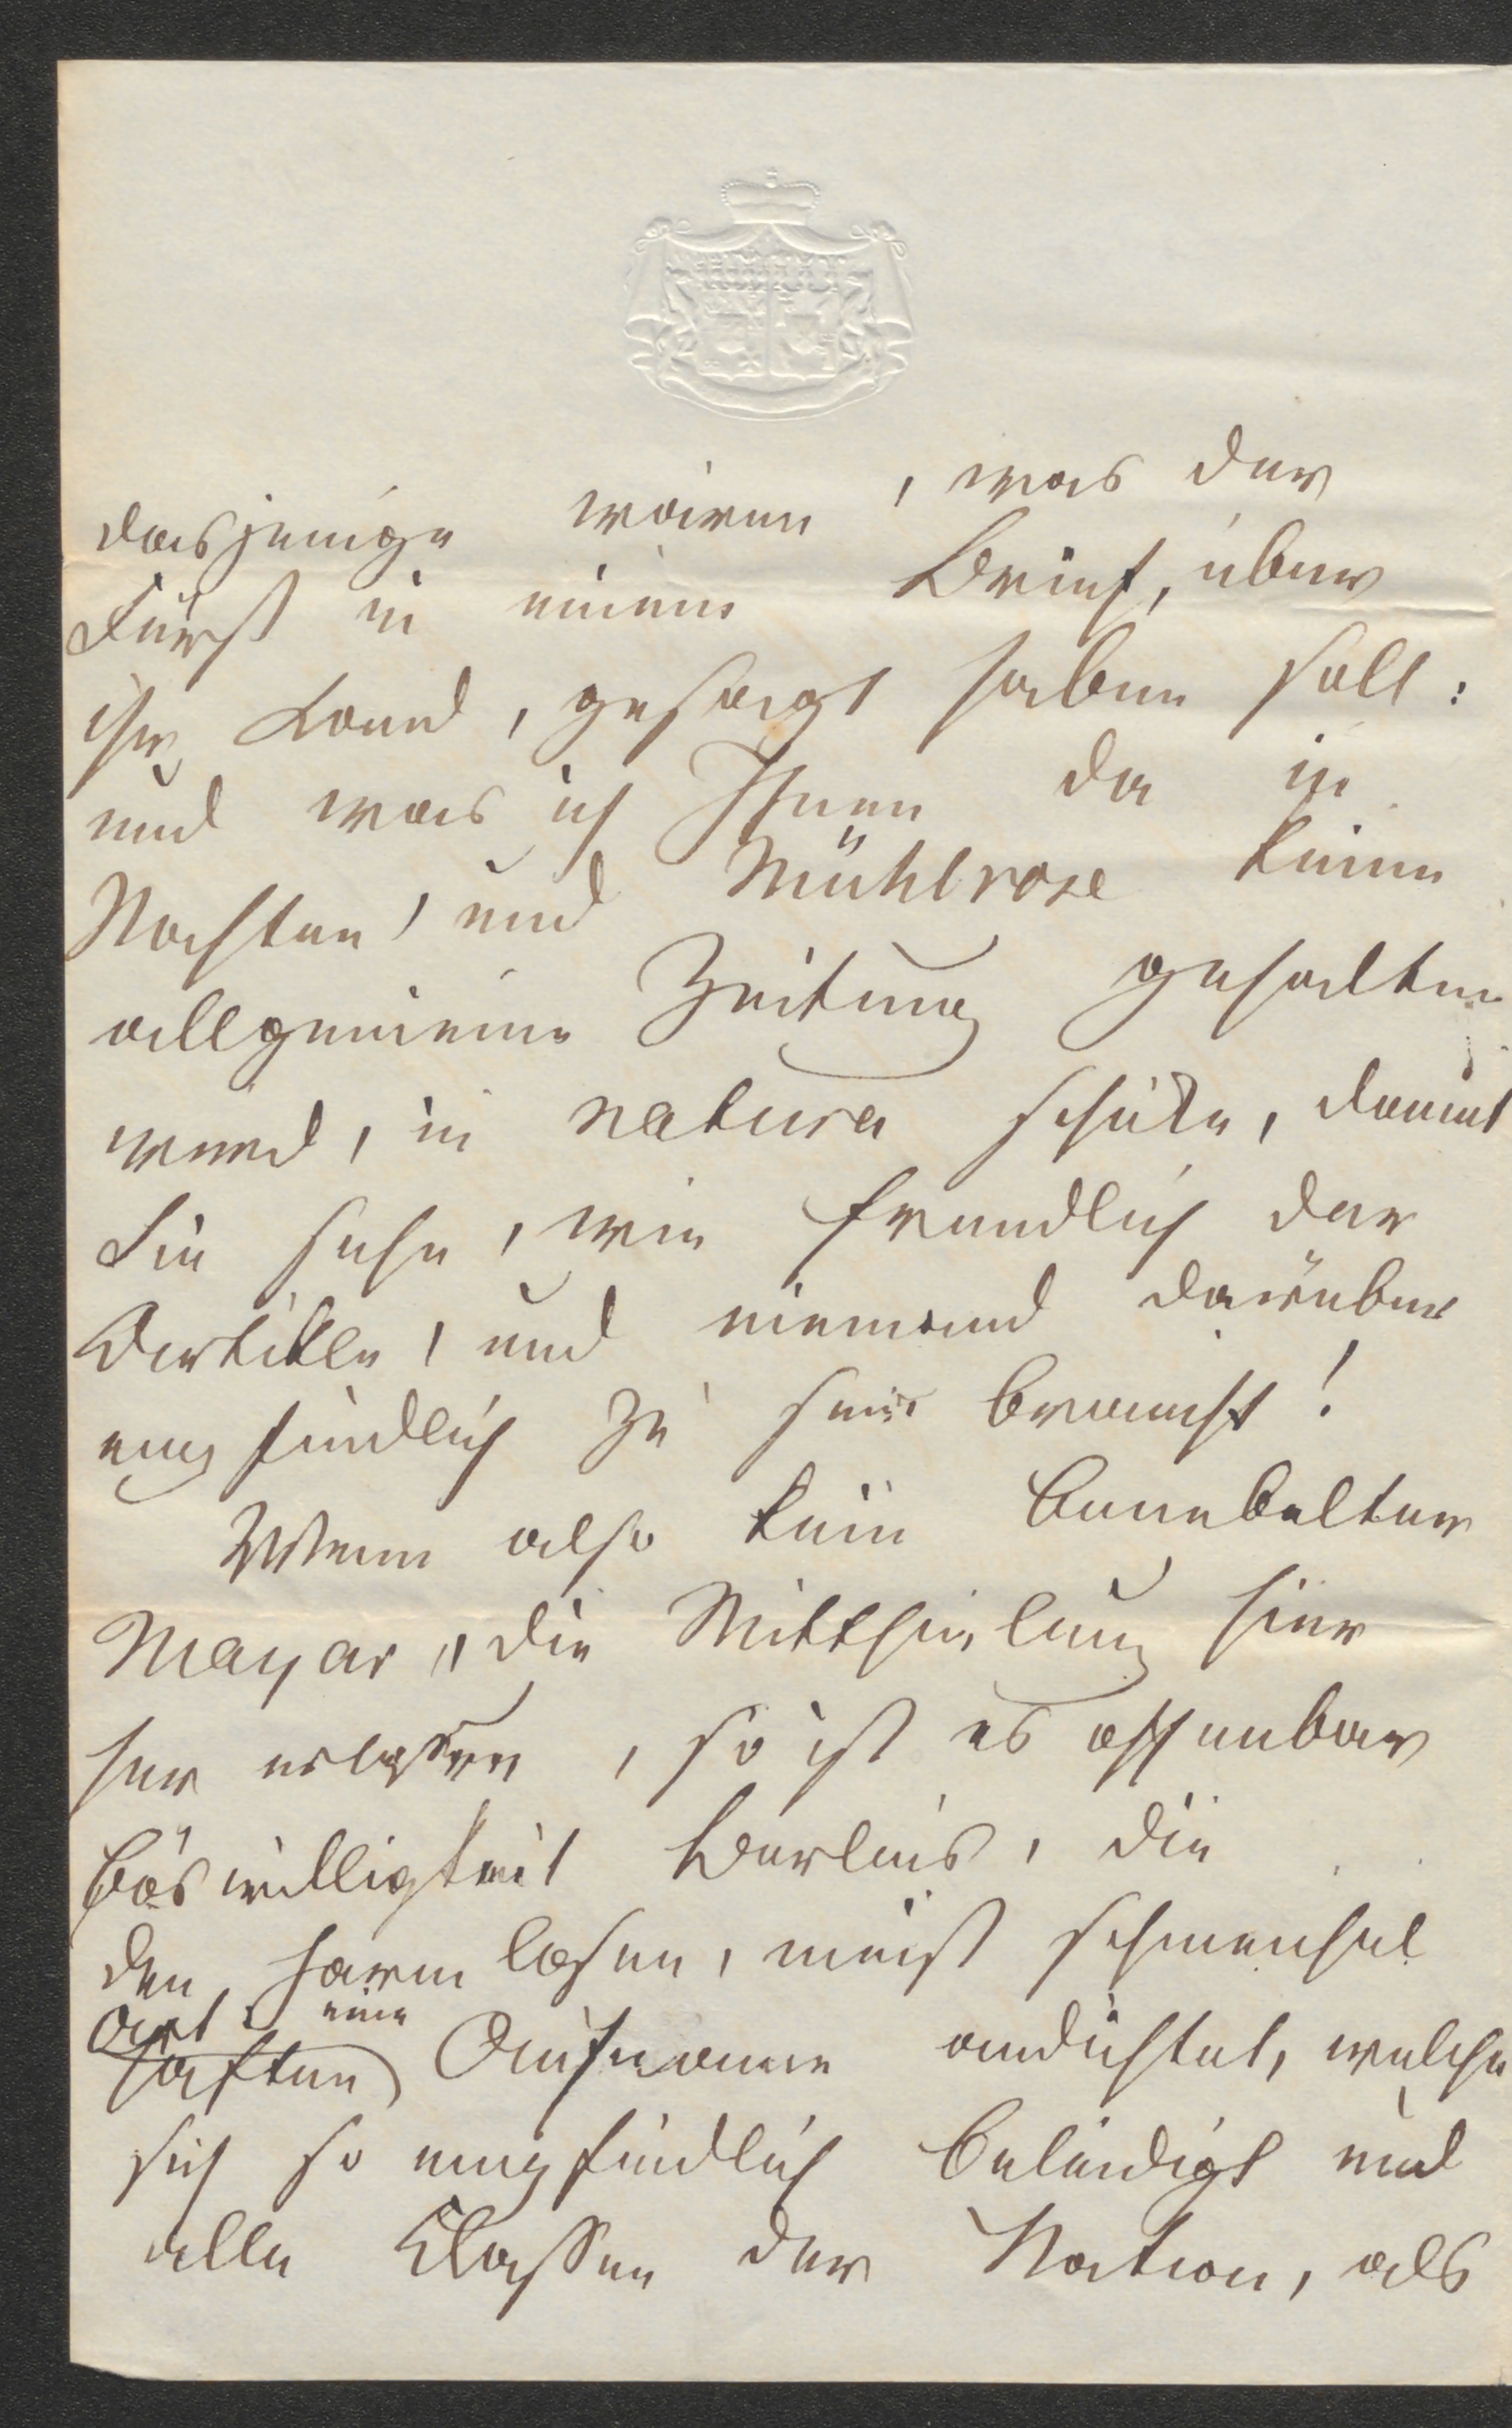 dasjenige wären, was der
Fürst in einem Brief, über
ihr Land, gesagt haben soll:
und was ich Ihnen da in
Nochten, und Mühlrose keine
allgemeine Zeitung gehalten
werd, in natura schicke, damit
Sie sehe, wie freundlich der
Artikle, und niemand darüber
empfindlich zu sein braucht!
Wenn also kein
Mayar, die Mittheilung hier
her erlassen, so ist es offenbar
böswilligkeit Berlins, die
den harmlosen, meist schmeichel
haften Art eine Aufname andichtet, welche
sich so empfindlich beleidigt und
alle Classen der Nation, als